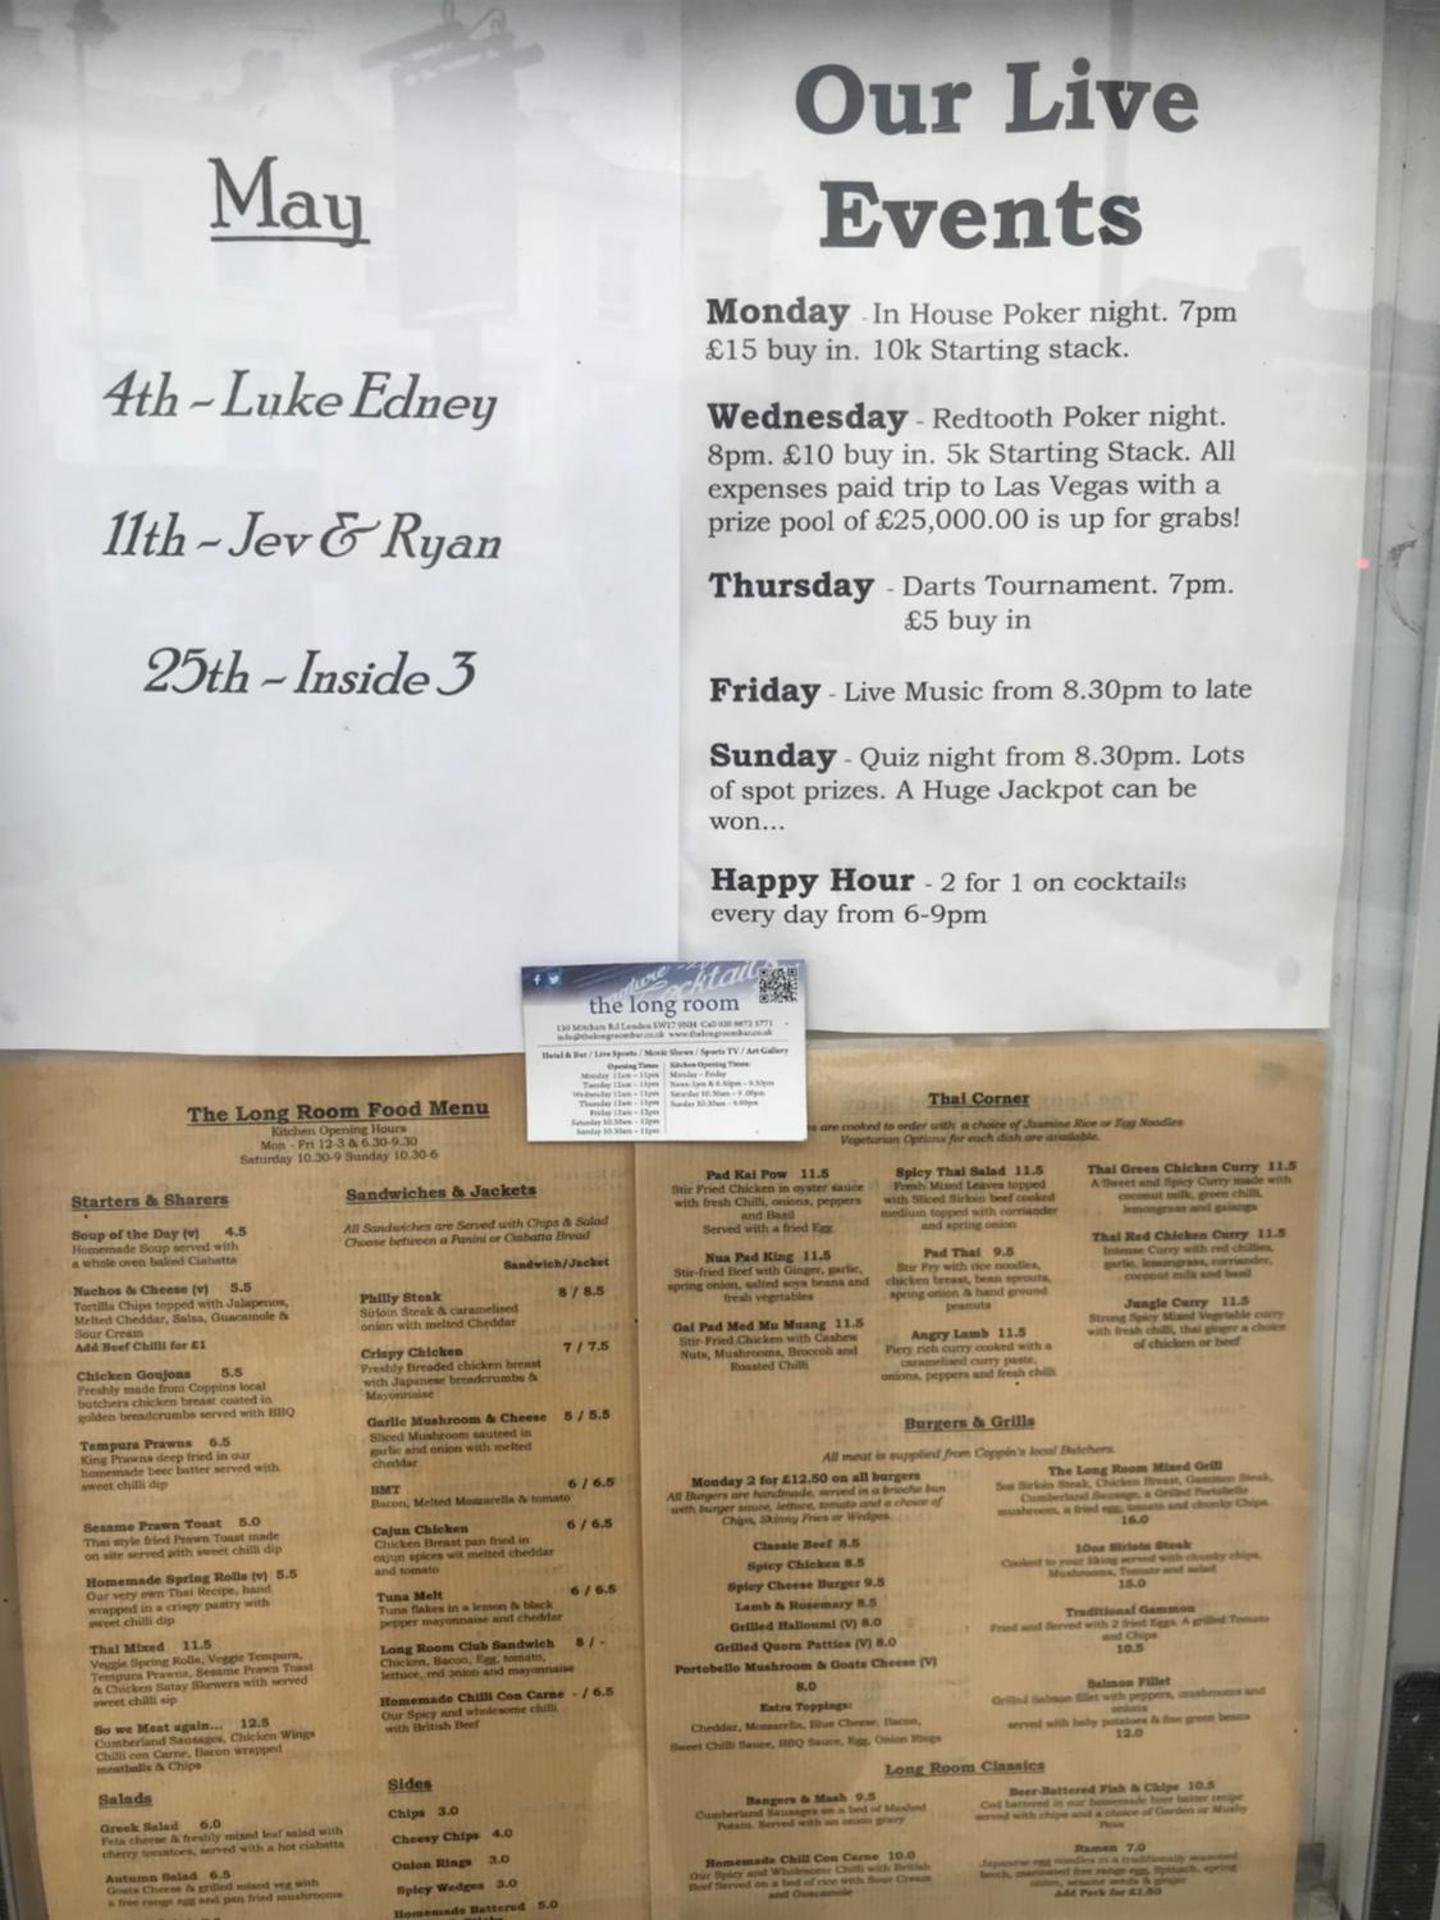 May
4th ~ Luke Edney
11th ~ Jev & Ryan
25th ~ Inside 3
Our Live
Events
Monday - In House Poker night. 7pm
£15 buy in. 10k Starting stack.
Wednesday - Redtooth Poker night.
8pm. £10 buy in. 5k Starting Stack. All
expenses paid trip to Las Vegas with a
prize pool of £25,000.00 is up for grabs!
Thursday - Darts Tournament. 7pm.
£5 buy in
Friday - Live Music from 8.30pm to late
Sunday - Quiz night from 8.30pm. Lots
of spot prizes. A Huge Jackpot can be
won...
Happy Hour - 2 for 1 on cocktails
every day from 6-9pm
the long room
130 Mitcham Rd London SW17 9NH Call 020 8672 5771
info@thelongroombar.co.uk www.thelongroombar.co.uk
/ Live Sports / Music Shows / Sports TV / Art Gallery
Opening Times
Monday 12am - 11pm
Tuesday 12am - 11pm
Wednesday 12am - 11pm
Thursday 12am - 11pm
Friday 12am - 12pm
Saturday 10.30am - 12pm
Sunday 10.30am - 11pm
Kitchen Opening Times:
Monday - Friday
Noon-3pm & 6.30pm - 9.30pm
Saturday 10.30am - 9.00pm
Sunday 10.30am - 6.00pm
The Long Room Food Menu
Kitchen Opening Hours
Mon - Fri 12-3 & 6.30-9.30
Saturday 10.30-9 Sunday 10.30-6
Starters & Sharers
Soup of the Day (v) 4.5
Homemade Soup served with
a whole oven baked Ciabatta
Nachos & Cheese (v) 5.5
Tortilla Chips topped with Jalapenos,
Melted Cheddar, Salsa, Guacamole &
Sour Cream
Add Beef Chilli for £1
Chicken Goujons 5.5
Freshly made from Coppins local
butchers chicken breast coated in
golden breadcrumbs served with BBQ
Tempura Prawns 6.5
King Prawns deep fried in our
homemade beer batter served with
sweet chilli dip
Sesame Prawn Toast 5.0
Thai style fried Prawn Toast made
on site served with sweet chilli dip
Homemade Spring Rolls (v) 5.5
Our very own Thai Recipe, hand
wrapped in a crispy pastry with
sweet chilli dip
Thai Mixed 11.5
Veggie Spring Rolls, Veggie Tempura,
Tempura Prawns, Sesame Prawn Toast
& Chicken Satay Skewers with served
sweet chilli sip
So we Meat again... 12.5
Cumberland Sausages, Chicken Wings
Chilli con Carne, Bacon wrapped
meatballs & Chips
Salads
Greek Salad 6.0
Feta cheese & freshly mixed leaf salad with
cherry tomatoes, served with a hot ciabatta
Autumn Salad 6.5
Goats Cheese & grilled mixed veg with
a free range egg and pan fried mushrooms
Sandwiches & Jackets
All Sandwiches are Served with Chips & Salad
Choose between a Panini or Ciabatta Bread
Sandwich/Jacket
Philly Steak 8 / 8.5
Sirloin Steak & caramelised
onion with melted Cheddar
Crispy Chicken 7 / 7.5
Freshly Breaded chicken breast
with Japanese breadcrumbs &
Mayonnaise
Garlic Mushroom & Cheese 5 / 5.5
Sliced Mushroom sauteed in
garlic and onion with melted
cheddar
BMT 6 / 6.5
Bacon, Melted Mozzarella & tomato
Cajun Chicken 6 / 6.5
Chicken Breast pan fried in
cajun spices wit melted cheddar
and tomato
Tuna Melt 6 / 6.5
Tuna flakes in a lemon & black
pepper mayonnaise and cheddar
Long Room Club Sandwich 8 / -
Chicken, Bacon, Egg, tomato,
lettuce, red onion and mayonnaise
Homemade Chilli Con Carne - / 6.5
Our Spicy and wholesome chilli
with British Beef
Sides
Chips 3.0
Cheesy Chips 4.0
Onion Rings 3.0
Spicy Wedges 3.0
Homemade Battered 5.0
Thai Corner
are cooked to order with a choice of Jasmine Rice or Egg Noodles
Vegetarian Options for each dish are available.
Pad Kai Pow 11.5
Stir Fried Chicken in oyster sauce
with fresh Chilli, onions, peppers
and Basil
Served with a fried Egg
Nua Pad King 11.5
Stir-fried Beef with Ginger, garlic,
spring onion, salted soya beans and
fresh vegetables
Gai Pad Med Mu Muang 11.5
Stir-Fried Chicken with Cashew
Nuts, Mushrooms, Broccoli and
Roasted Chilli
Spicy Thai Salad 11.5
Fresh Mixed Leaves topped
with Sliced Sirloin beef cooked
medium topped with corriander
and spring onion
Pad Thai 9.5
Stir Fry with rice noodles,
chicken breast, bean sprouts,
spring onion & hand ground
peanuts
Angry Lamb 11.5
Fiery rich curry cooked with a
caramelised curry paste,
onions, peppers and fresh chilli
Thai Green Chicken Curry 11.5
A Sweet and Spicy Curry made with
coconut milk, green chilli,
lemongrass and galanga
Thai Red Chicken Curry 11.5
Intense Curry with red chillies,
garlic, lemongrass, corriander,
coconut milk and basil
Jungle Curry 11.5
Strong Spicy Mixed Vegetable curry
with fresh chilli, thai ginger a choice
of chicken or beef
Burgers & Grills
All meat is supplied from Coppin's local Butchers.
Monday 2 for £12.50 on all burgers
All Burgers are handmade, served in a brioche bun
with burger sauce, lettuce, tomato and a choice of
Chips, Skinny Fries or Wedges.
Classic Beef 8.5
Spicy Chicken 8.5
Spicy Cheese Burger 9.5
Lamb & Rosemary 8.5
Grilled Halloumi (V) 8.0
Grilled Quorn Patties (V) 8.0
Portobello Mushroom & Goats Cheese (V)
8.0
Extra Toppings:
Cheddar, Mozzarella, Blue Cheese, Bacon,
Sweet Chilli Sauce, BBQ Sauce, Egg, Onion Rings
The Long Room Mixed Grill
5oz Sirloin Steak, Chicken Breast, Gammon Steak,
Cumberland Sausage, a Grilled Portobello
mushroom, a fried egg, tomato and chunky Chips.
16.0
10oz Sirloin Steak
Cooked to your liking served with chunky chips,
Mushrooms, Tomato and salad
15.0
Traditional Gammon
Fried and Served with 2 fried Eggs, A grilled Tomato
and Chips
10.5
Salmon Fillet
Grilled Salmon fillet with peppers, mushrooms and
onions
served with baby potatoes & fine green beans
12.0
Long Room Classics
Bangers & Mash 9.5
Cumberland Sausages on a bed of Mashed
Potato. Served with an onion gravy
Homemade Chili Con Carne 10.0
Our Spicy and Wholesome Chilli with British
Beef Served on a bed of rice with Sour Cream
and Guacamole
Beer-Battered Fish & Chips 10.5
Cod battered in our homemade beer batter recipe
served with chips and a choice of Garden or Mushy
Peas
Ramen 7.0
Japanese egg noodles in a traditionally seasoned
broth, marinated free range egg, Spinach, spring
onion, sesame seeds & ginger
Add Pork for £1.50